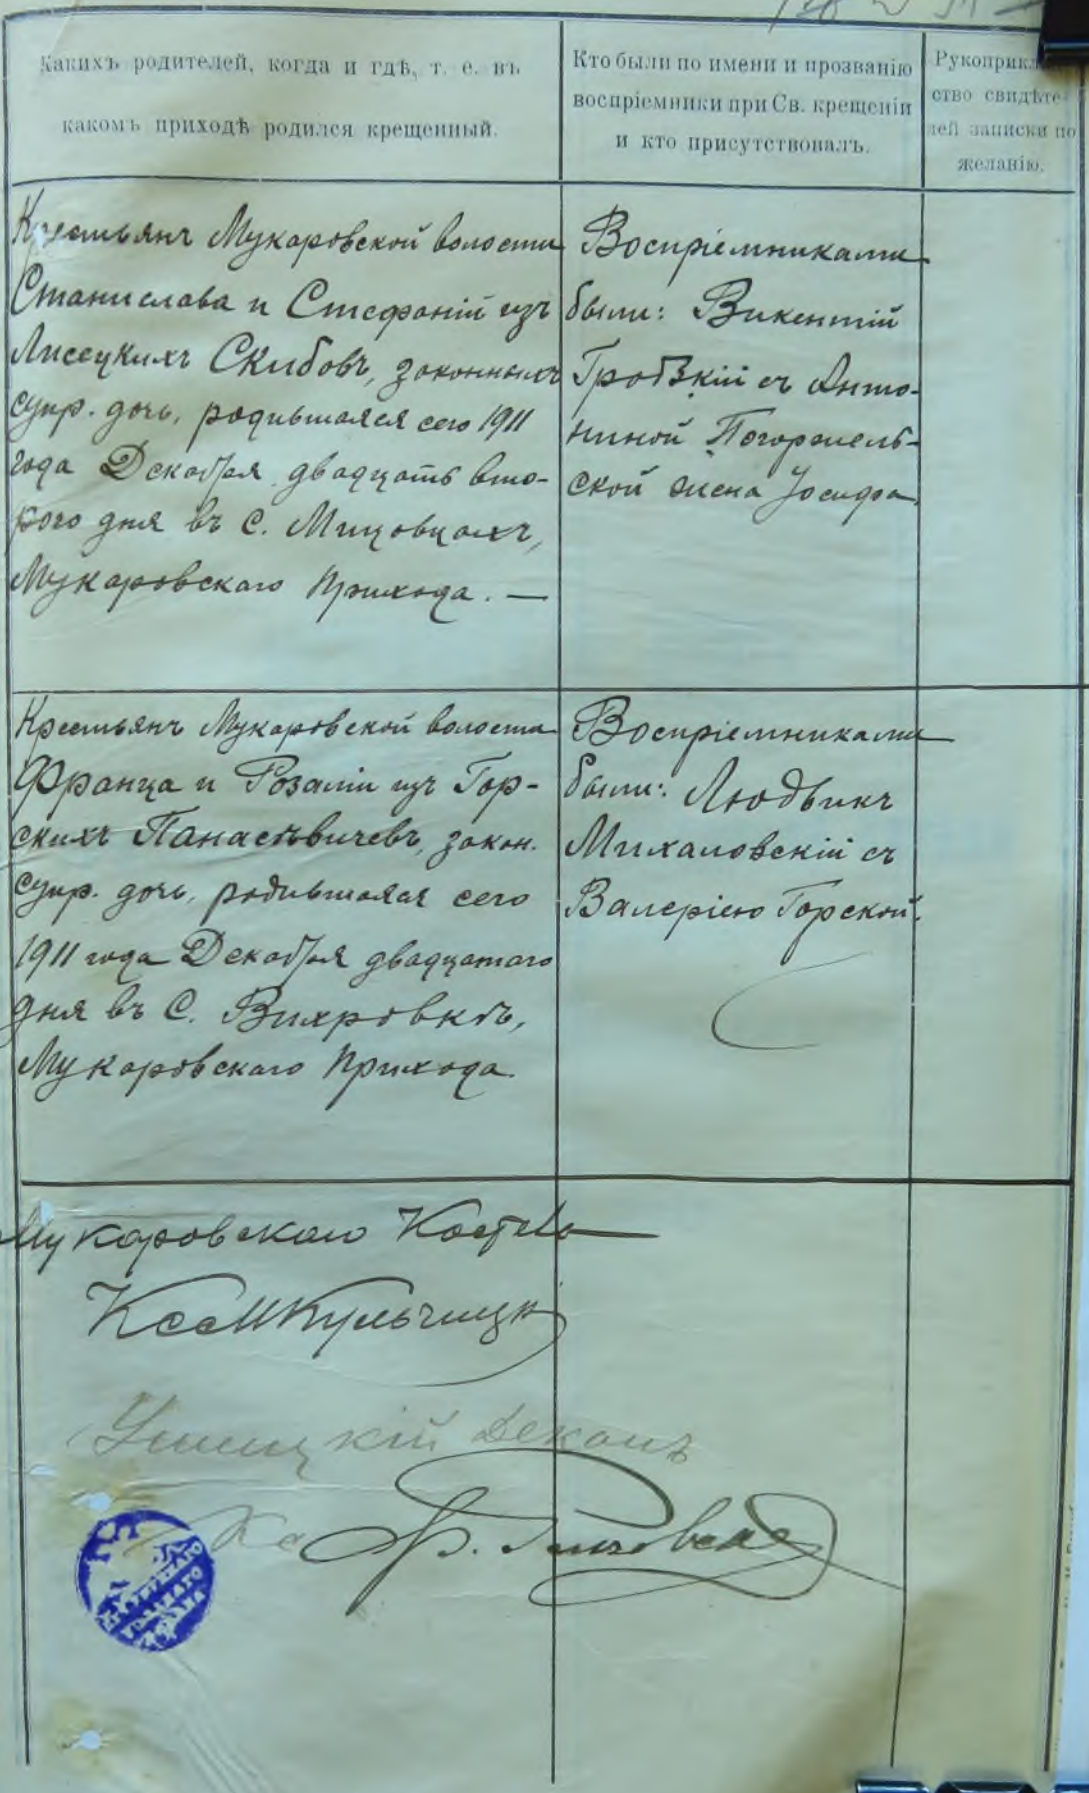 Какихъ родителей, когда и гдѣ, т. е. въ
какомъ приходѣ родился крещенный.
Кто были по имени и прозванію
воспріемники при Св. крещеніи
и кто присутствовалъ.
Рукоприклад
ство свидѣте-
лей записки по
желанію.
Крестьянъ Мукаровской волости
Станислава и Стефаніи изъ
Лисецкихъ Скибовъ, законныхъ
супр. дочь, родившаяся сего 1911
года Декабря двадцать вто-
рого дня въ С. Мицовцахъ,
Мукаровскаго Прихода. —
Воспріемниками
были: Викентій
Гродзкій съ Анто-
ниной Погоржель-
ской жена Іосифа.
Крестьянъ Мукаровской волости
Франца и Розаліи изъ Гор-
скихъ Панасевичевъ, закон.
супр. дочь, родившаяся сего
1911 года Декабря двадцатаго
дня въ С. Вихровкѣ,
Мукаровскаго Прихода.
Воспріемниками
были: Людвикъ
Михаловскій съ
Валеріею Горской.
Мукаровскаго Костела
Кульчицк
Ушицкій Деканъ